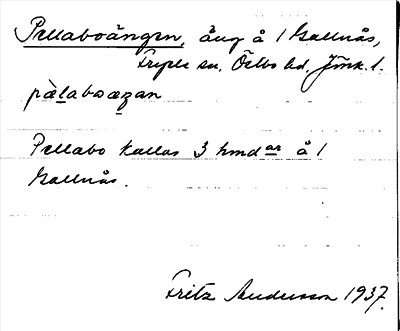 Pellaboängen, äng å 1 Gallnås,
Fryele sn, Östbo hd, Jönk. l.
pèlaboæŋan
Pellabo kallas 3 hmdar å 1
Gallnås.
Fritz Andersson 1937.